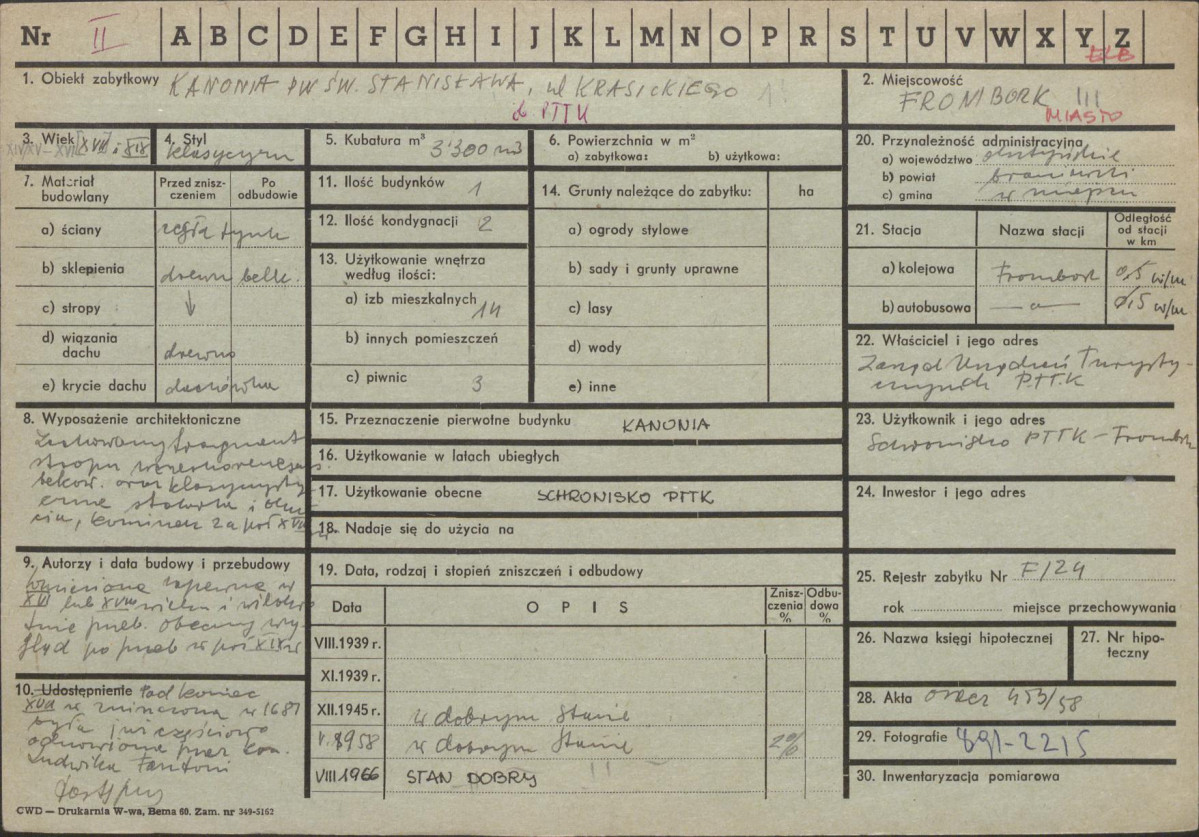 Nr II A B C D E F G H I J K L M N O P R S T U V W X Y Z
ELB
1. Obiekt zabytkowy KANONIA PW ŚW. STANISŁAWA, ul KRASICKIEGO
PTTK
2. Miejscowość
FROMBORK III
MIASTO
3. Wiek XVII i XIX
XIV/XV–XVII
4. Styl
klasycyzm
5. Kubatura m³ 3'300 m3
6. Powierzchnia w m²
a) zabytkowa: b) użytkowa:
20. Przynależność administracyjna
a) województwo olsztyńskie
b) powiat braniewski
c) gmina w miejscu
7. Materiał budowlany
Przed zniszczeniem
Po odbudowie
a) ściany cegła tynk
b) sklepienia drewn belk.
c) stropy ↓
d) wiązania dachu drewno
e) krycie dachu dachówka
11. Ilość budynków 1
12. Ilość kondygnacji 2
13. Użytkowanie wnętrza według ilości:
a) izb mieszkalnych 14
b) innych pomieszczeń
c) piwnic 3
14. Grunty należące do zabytku: ha
a) ogrody stylowe
b) sady i grunty uprawne
c) lasy
d) wody
e) inne
21. Stacja Nazwa stacji Odległość od stacji w km
a) kolejowa Frombork 0,5 w/m
b) autobusowa —〃— 0,5 w/m
22. Właściciel i jego adres
Zarząd Urządzeń Turysty-
cznych PTTK
8. Wyposażenie architektoniczne
Zachowany fragment
stropu
belkow. oraz klasycysty
czne stolarka i
cia, kominek 2a poł XVIII
15. Przeznaczenie pierwotne budynku KANONIA
16. Użytkowanie w latach ubiegłych
17. Użytkowanie obecne SCHRONISKO PTTK
18. Nadaje się do użycia na
23. Użytkownik i jego adres
Schronisko PTTK – Frombork
24. Inwestor i jego adres
9. Autorzy i data budowy i przebudowy
Wzniesiona zapewne w
XVI lub XVII wieku i wielokro
tnie przeb. obecny wy
gląd po przeb w poł XIX w
19. Data, rodzaj i stopień zniszczeń i odbudowy
Data O P I S Zniszczenia % Odbudowa %
VIII.1939 r.
XI.1939 r.
XII.1945 r. w dobrym stanie
V.1958 w dobrym stanie 20%
VIII 1966 STAN DOBRY
25. Rejestr zabytku Nr F/24
rok miejsce przechowywania
26. Nazwa księgi hipotecznej
27. Nr hipoteczny
10. Udostępnienie Pod koniec
XVII w zniszczona w 1681
była już częściowo
odnowiona przez kan.
Ludwika Fantoni
Dostępny
28. Akta 453/58
29. Fotografie 891-2215
30. Inwentaryzacja pomiarowa
CWD — Drukarnia W-wa, Bema 60. Zam. nr 349-5162